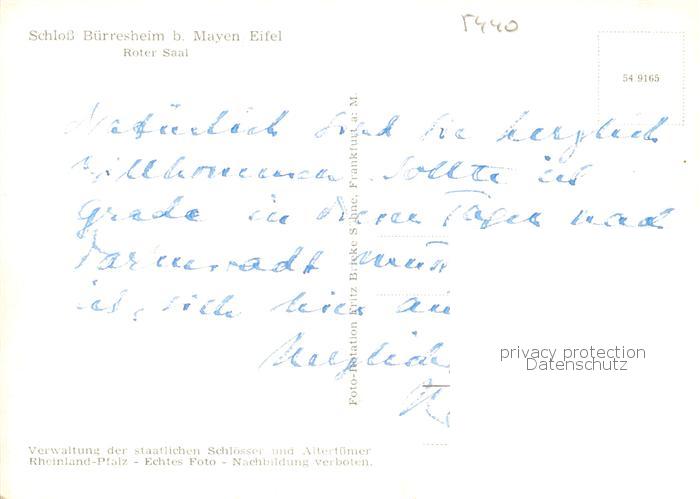 5440
Schloß Bürresheim b. Mayen Eifel
Roter Saal
54 9165
Natürlich sind Sie herzlich
willkommen. Sollte ich
grade in diesen Tagen nach
Darmstadt müs
ich, hier
Herzlich
Foto-Rotation Fritz Brieke Söhne, Frankfurt a. M.
privacy protection
Datenschutz
Verwaltung der staatlichen Schlösser und Altertümer
Rheinland-Pfalz - Echtes Foto - Nachbildung verboten.